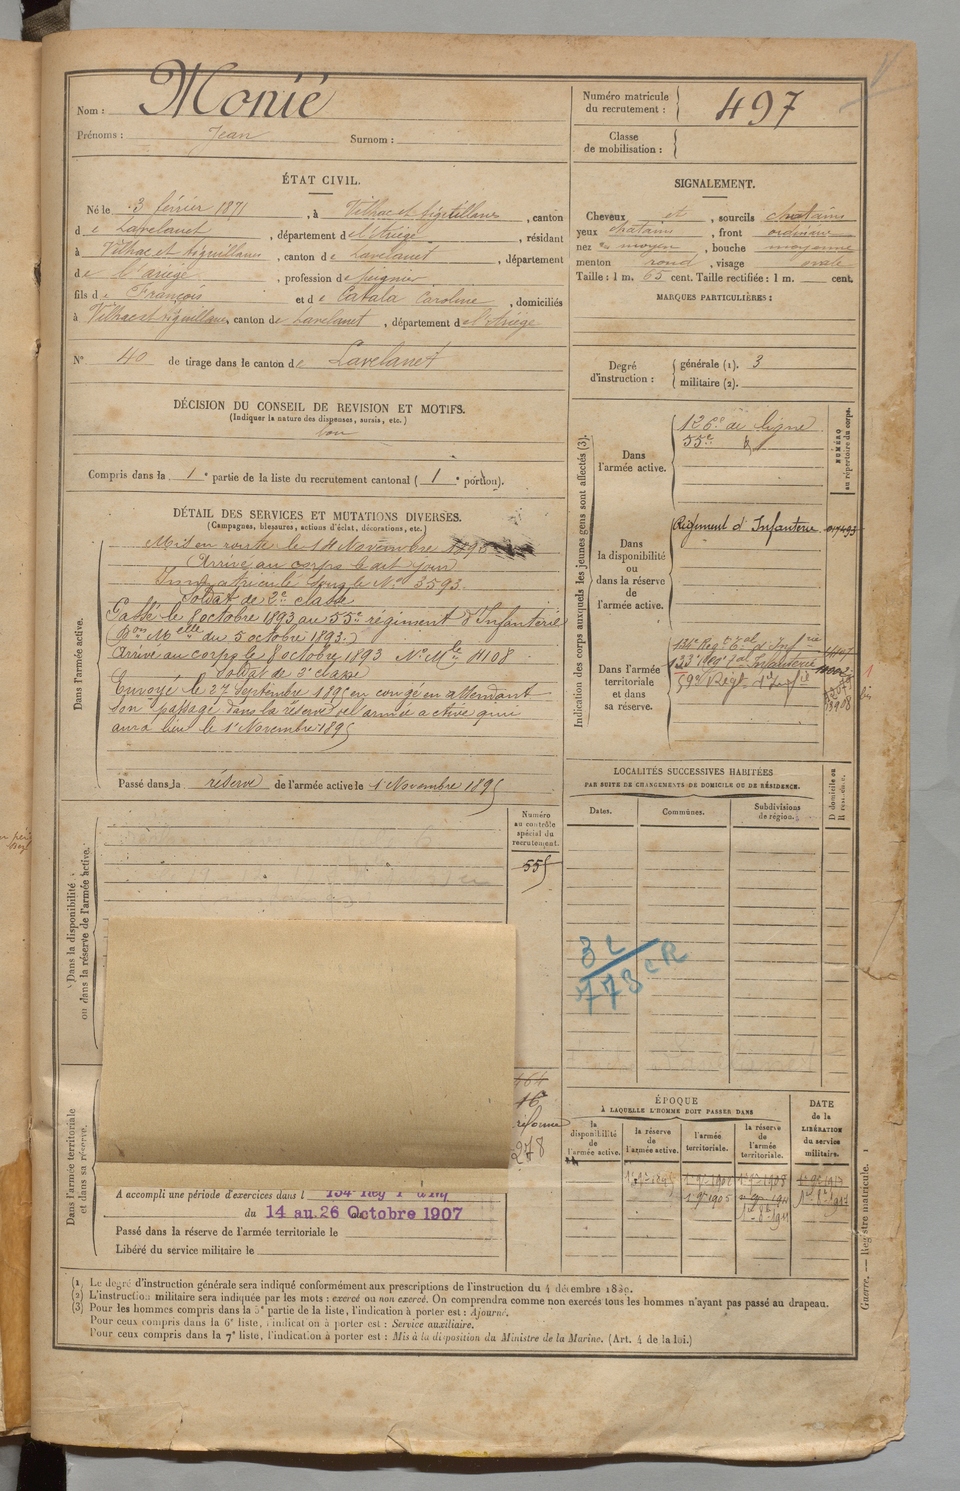 Nom : Monié
Prénoms : Jean Surnom :
ÉTAT CIVIL.
Né le 3 février 1871, à Vilhac et Aiguillanes, canton
de Lavelanet, département de l'Ariège, résidant
à Vilhac et Aiguillanes, canton de Lavelanet, département
de l'Ariège, profession de peignier
fils de François et de Cabala Caroline, domiciliés
à Vilhac et Aiguillanes, canton de Lavelanet, département de l'Ariège
N° 40 de tirage dans le canton de Lavelanet
DÉCISION DU CONSEIL DE REVISION ET MOTIFS.
(Indiquer la nature des dispenses, sursis, etc.)
bon
Compris dans la 1e partie de la liste du recrutement cantonal (1e portion).
DÉTAIL DES SERVICES ET MUTATIONS DIVERSES.
(Campagnes, blessures, actions d'éclat, décorations, etc.)
Dans l'armée active.
Mis en route le 14 Novembre
Arrivé au corps le dit jour
Immatriculé sous le N° 3593.
Soldat de 2e classe
Passé le 8 octobre 1893 au 55e régiment d'Infanterie
(Bon Melle du 5 octobre 1893.)
Arrivé au corps le 8 octobre 1893 N° Mle 4108
Soldat de classe
Envoyé le 27 Septembre 1895 en congé en attendant
son passage dans la réserve de l'armée active qui
aura lieu le 1er Novembre 1895
Passé dans la réserve de l'armée active le 1er Novembre 1895
Dans la disponibilité
ou dans la réserve de l'armée active.
Numéro
au contrôle
spécial du
recrutement.
555
464
16
réforme
278
Dans l'armée territoriale
et dans sa réserve.
A accompli une période d'exercices dans l 134e Rég T d'Inf
du 14 au 26 Octobre 1907
Passé dans la réserve de l'armée territoriale le
Libéré du service militaire le
Numéro matricule
du recrutement : 497
Classe
de mobilisation :
SIGNALEMENT.
Cheveux et, sourcils chatains
yeux chatains, front ordinaire
nez moyen, bouche moyenne
menton rond, visage ovale
Taille : 1 m. 65 cent. Taille rectifiée : 1 m. cent.
MARQUES PARTICULIÈRES :
Degré
d'instruction :
générale (1). 3
militaire (2).
Indication des corps auxquels les jeunes gens sont affectés (3).
NUMÉRO
au répertoire du corps.
Dans
l'armée active.
126e de ligne
55e
Dans
la disponibilité
ou
dans la réserve
de
l'armée active.
Régiment d'Infanterie
Dans l'armée
territoriale
et dans
sa réserve.
134e Régt Tal d'Infie
133e Régt Tal Infanterie
59e Régt
LOCALITÉS SUCCESSIVES HABITÉES
PAR SUITE DE CHANGEMENTS DE DOMICILE OU DE RÉSIDENCE.
Dates. Communes. Subdivisions
de région.
D domicile ou
R résidence.
3 c
773 c R
ÉPOQUE
À LAQUELLE L'HOMME DOIT PASSER DANS
la
disponibilité
de
l'armée active.
la réserve
de
l'armée active.
l'armée
territoriale.
la réserve
de
l'armée
territoriale.
DATE
de la
LIBÉRATION
du service
militaire.
1er 9bre 1905
(1) Le degré d'instruction générale sera indiqué conformément aux prescriptions de l'instruction du 4 décembre 1889.
(2) L'instruction militaire sera indiquée par les mots : exercé ou non exercé. On comprendra comme non exercés tous les hommes n'ayant pas passé au drapeau.
(3) Pour les hommes compris dans la 5e partie de la liste, l'indication à porter est : Ajourné.
Pour ceux compris dans la 6e liste, l'indication à porter est : Service auxiliaire.
Pour ceux compris dans la 7e liste, l'indication à porter est : Mis à la disposition du Ministre de la Marine. (Art. 4 de la loi.)
Guerre. — Registre matricule.